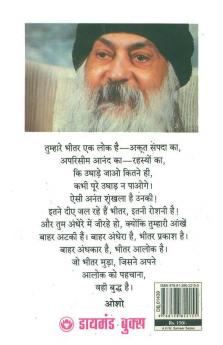 तुम्हारे भीतर एक लोक है—अकूत संपदा का,
अपरिसीम आनंद का—रहस्यों का,
कि उघाड़े जाओ कितने ही,
कभी पूरे उघाड़ न पाओगे।
ऐसी अनंत शृंखला है उनकी!
इतने दीए जल रहे हैं भीतर, इतनी रोशनी है!
और तुम अंधेरे में जीरहे हो, क्योंकि तुम्हारी आंखें
बाहर अटकी हैं। बाहर अंधेरा है, भीतर प्रकाश है।
बाहर अंधकार है, भीतर आलोक है।
जो भीतर मुड़ा, जिसने अपने
आलोक को पहचाना,
वही बुद्ध है।
ओशो
डायमंड बुक्स